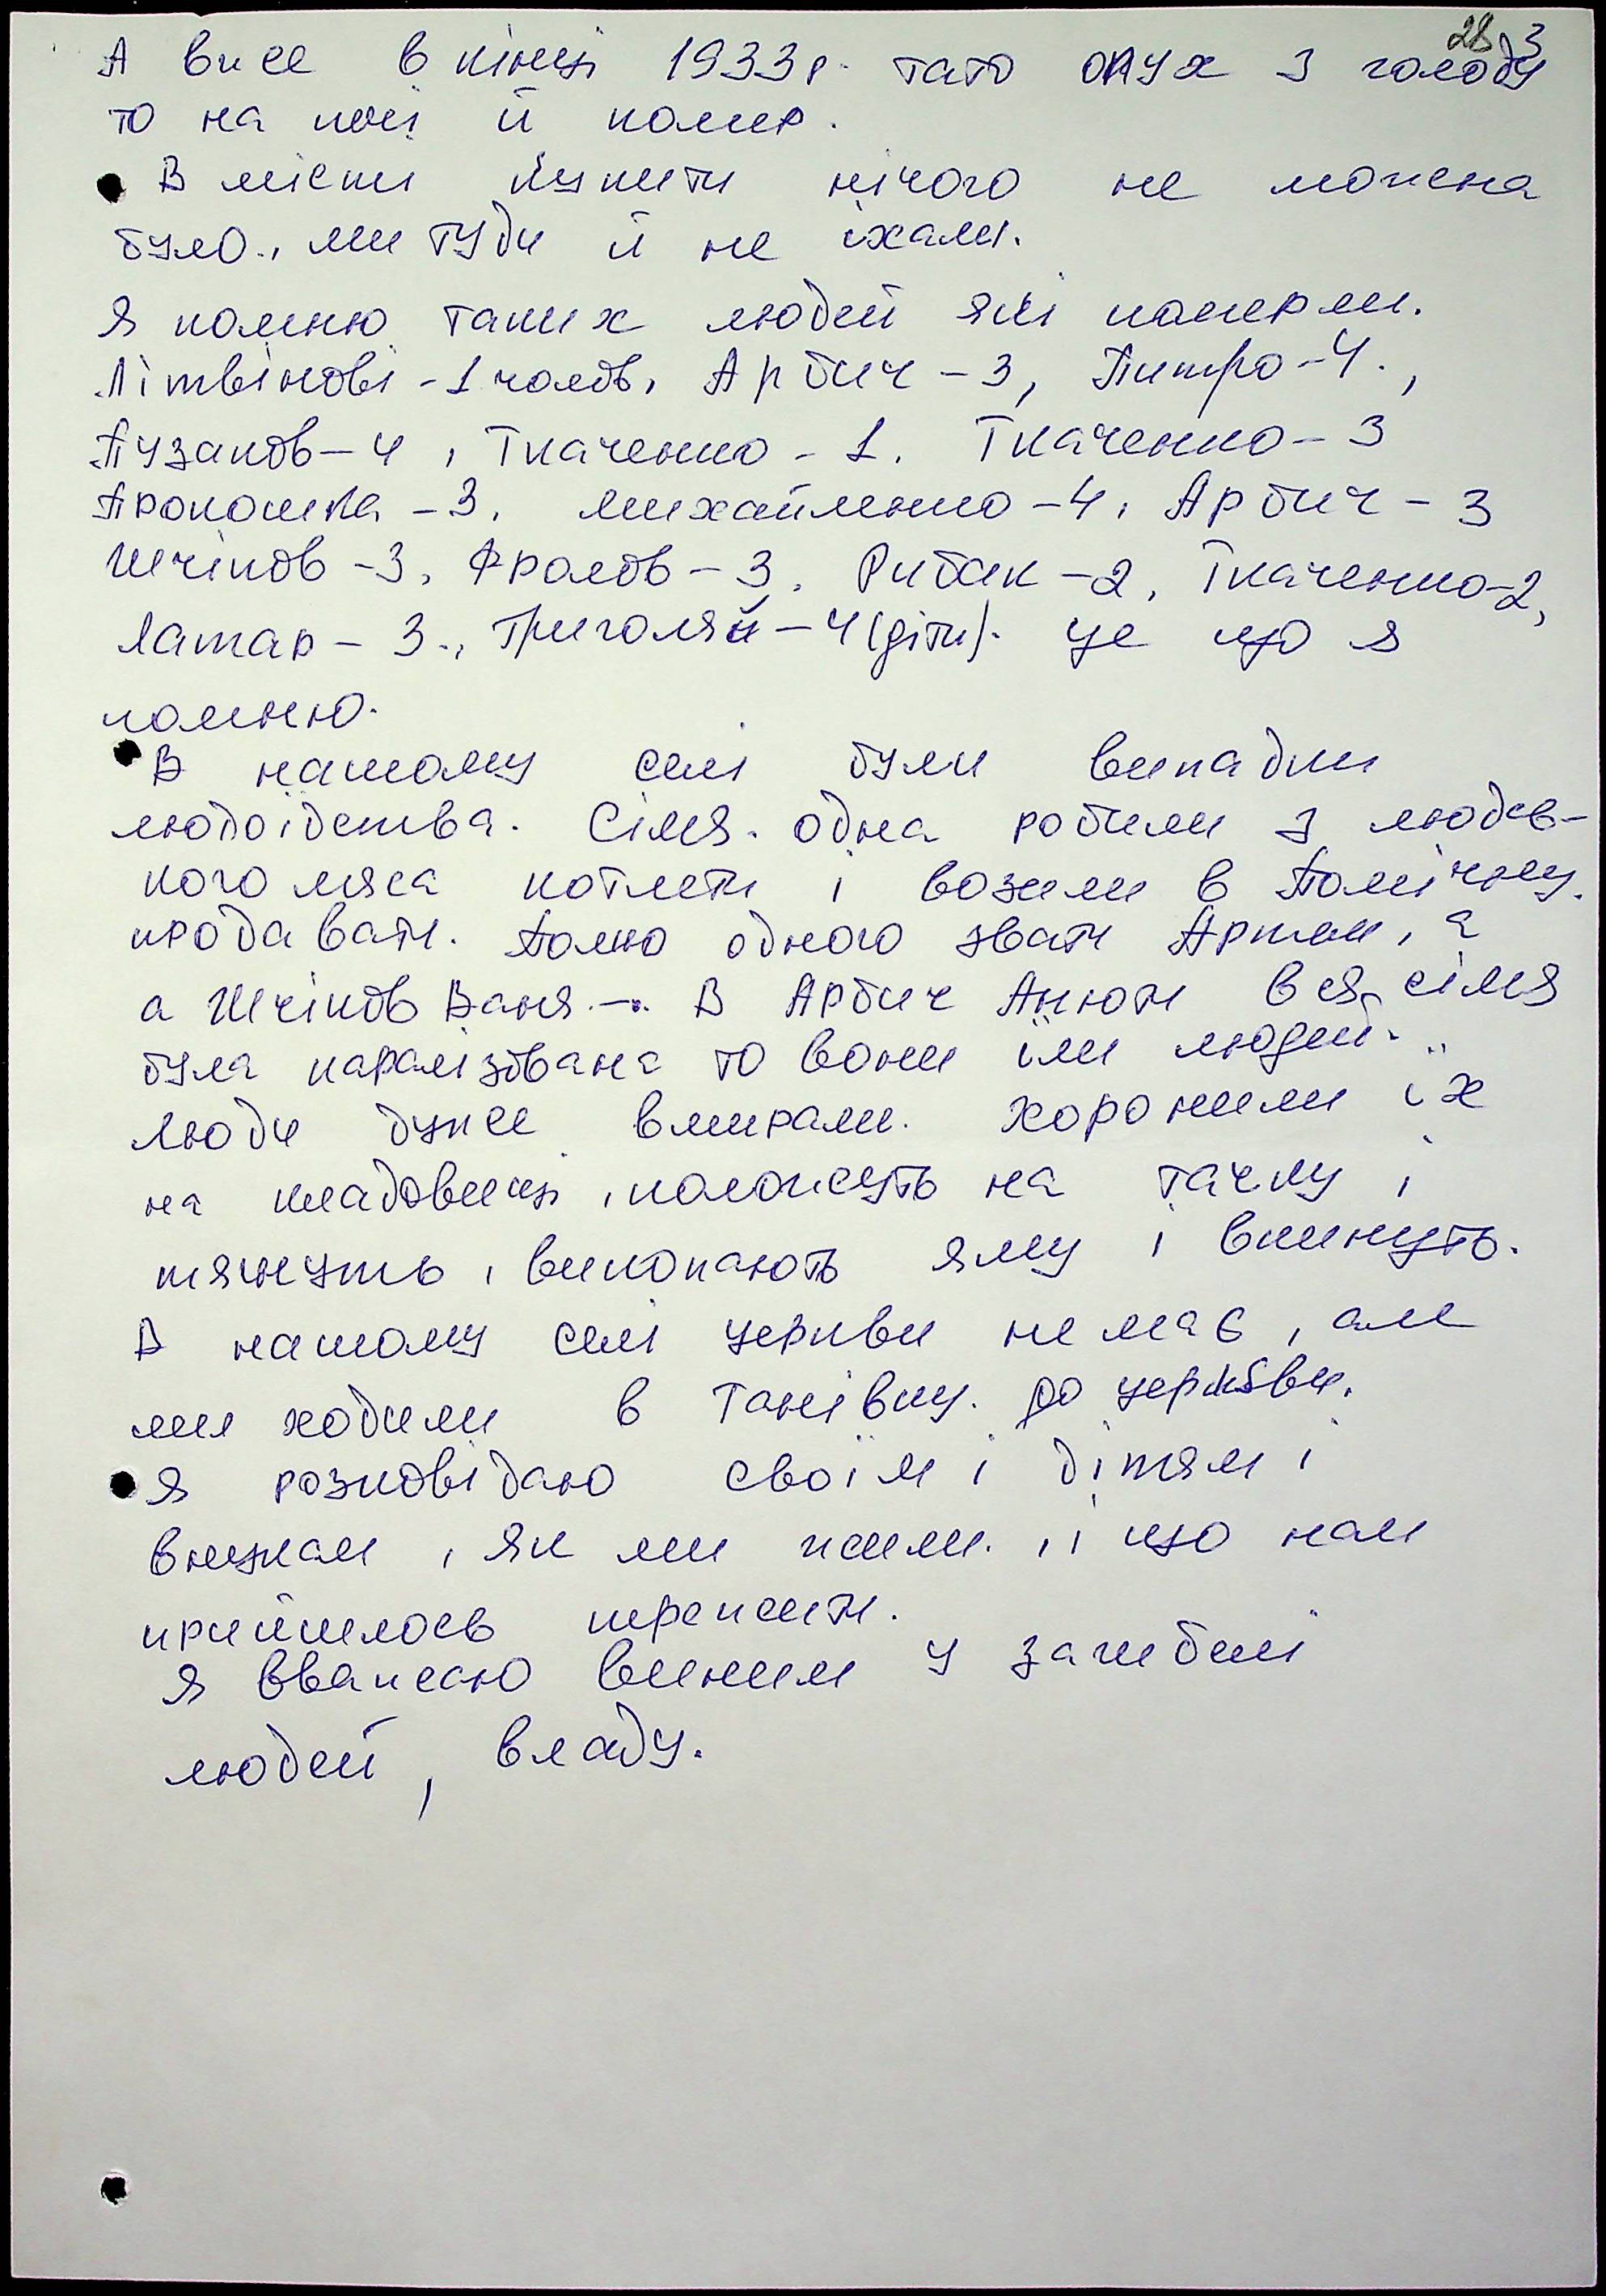 28 3
А вже в кінці 1933р. тато опух з голоду
то на печі й помер.
В місті купити нічого не можна
було., ми туди й не їхали.
Я помню таких людей які померли.
Літвінові -1 чолов, Арбич - 3, Питро-4.,
Пузанов-4, Ткаченко - 1. Ткаченко - 3
Прокошка - 3, михайленко -4, Арбич - 3
Шчіпов -3, Фролов - 3, Рибак - 2, Ткаченко-2,
Латар - 3., Григоляй - 4 (діти). це що я
помню.
В нашому селі були випадки
людоїдства. Сімя одна робили з людсь-
кого мяса котлети і возили в Помічну.
продавати. Помю одного звати Артем, а
а Шчіпов Ваня. -. В Арбич Анюти вся сімя
була паралізована то вони їли людей.
Люди дуже вмирали. хоронили їх
на кладовищі, положуть на тачку і
тянуть, викопають яму і вкинуть.
В нашому селі церкви немає, але
ми ходили в Танівку. до церкви.
Я розповідаю своїм і дітям і
внукам, як ми жили. , і що нам
прийшлось пережити.
Я вважаю виним у загибелі
людей, владу.